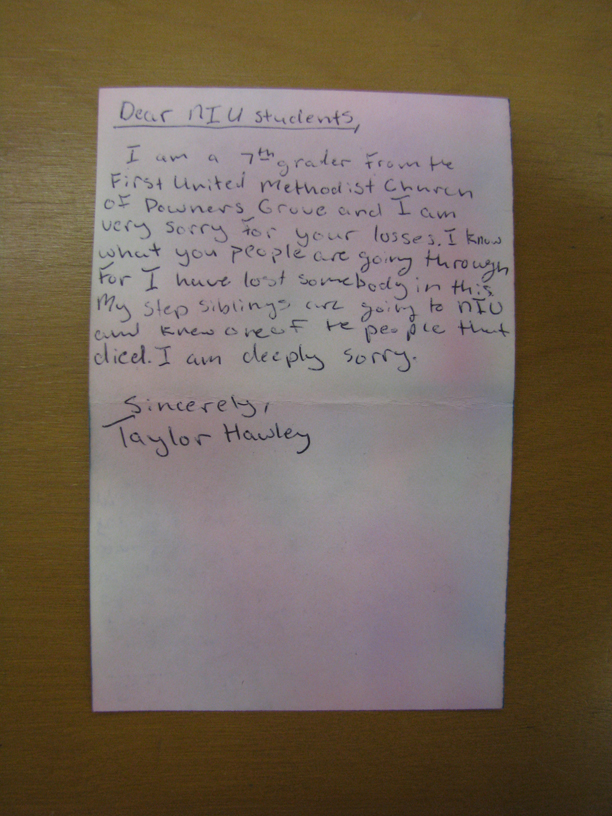 Dear NIU students,
I am a 7th grader from the
First United Methodist Church
of Downers Grove and I am
very sorry for your losses. I know
what you people are going through
for I have lost somebody in this
My step siblings are going to NIU
and knew one of the people that
died. I am deeply sorry.
Sincerely,
Taylor Hawley